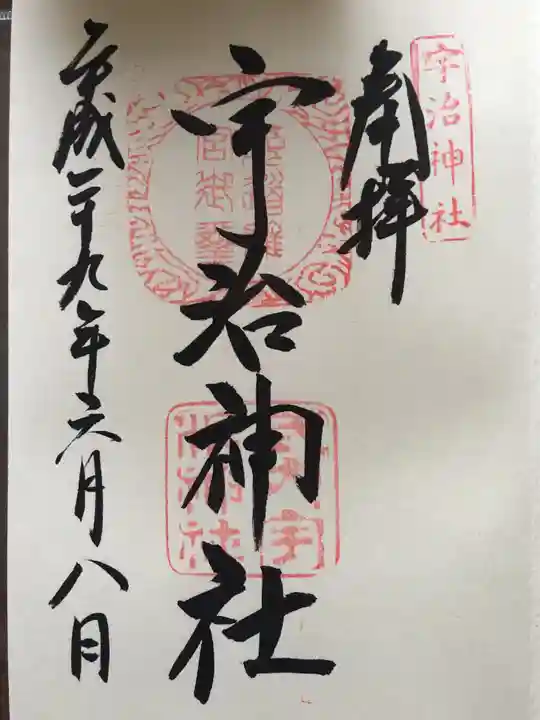 宇治神社
奉拝
宇治神社
平成二十九年六月八日